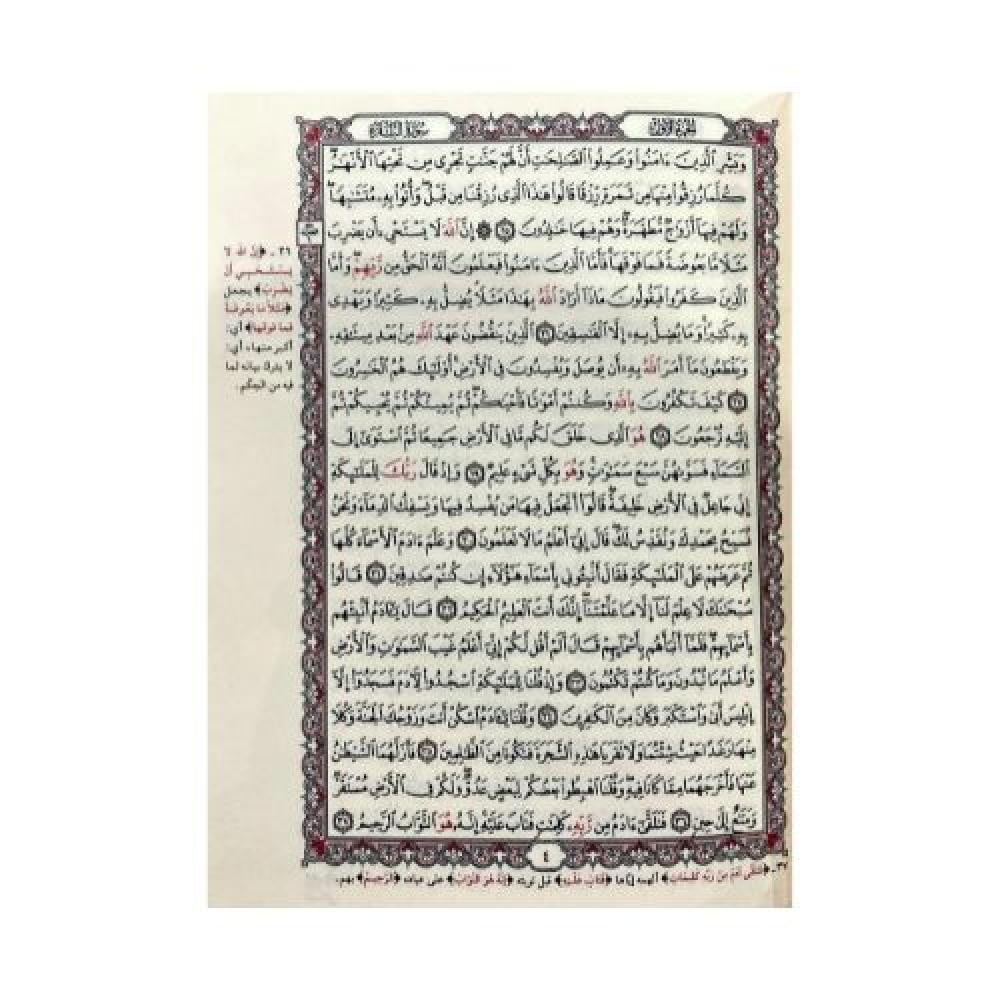 الجزء الأول
سورة البقرة
وَبَشِّرِ ٱلَّذِينَ ءَامَنُوا۟ وَعَمِلُوا۟ ٱلصَّٰلِحَٰتِ أَنَّ لَهُمْ جَنَّٰتٍ تَجْرِى مِن تَحْتِهَا ٱلْأَنْهَٰرُ
كُلَّمَا رُزِقُوا۟ مِنْهَا مِن ثَمَرَةٍ رِّزْقًا قَالُوا۟ هَٰذَا ٱلَّذِى رُزِقْنَا مِن قَبْلُ وَأُتُوا۟ بِهِۦ مُتَشَٰبِهًا
وَلَهُمْ فِيهَآ أَزْوَٰجٌ مُّطَهَّرَةٌ وَهُمْ فِيهَا خَٰلِدُونَ ٢٥ ۞ إِنَّ ٱللَّهَ لَا يَسْتَحْىِۦٓ أَن يَضْرِبَ
مَثَلًا مَّا بَعُوضَةً فَمَا فَوْقَهَا فَأَمَّا ٱلَّذِينَ ءَامَنُوا۟ فَيَعْلَمُونَ أَنَّهُ ٱلْحَقُّ مِن رَّبِّهِمْ وَأَمَّا
ٱلَّذِينَ كَفَرُوا۟ فَيَقُولُونَ مَاذَآ أَرَادَ ٱللَّهُ بِهَٰذَا مَثَلًا يُضِلُّ بِهِۦ كَثِيرًا وَيَهْدِى
بِهِۦ كَثِيرًا وَمَا يُضِلُّ بِهِۦٓ إِلَّا ٱلْفَٰسِقِينَ ٢٦ ٱلَّذِينَ يَنقُضُونَ عَهْدَ ٱللَّهِ مِنۢ بَعْدِ مِيثَٰقِهِۦ
وَيَقْطَعُونَ مَآ أَمَرَ ٱللَّهُ بِهِۦٓ أَن يُوصَلَ وَيُفْسِدُونَ فِى ٱلْأَرْضِ أُو۟لَٰٓئِكَ هُمُ ٱلْخَٰسِرُونَ
٢٧ كَيْفَ تَكْفُرُونَ بِٱللَّهِ وَكُنتُمْ أَمْوَٰتًا فَأَحْيَٰكُمْ ثُمَّ يُمِيتُكُمْ ثُمَّ يُحْيِيكُمْ ثُمَّ
إِلَيْهِ تُرْجَعُونَ ٢٨ هُوَ ٱلَّذِى خَلَقَ لَكُم مَّا فِى ٱلْأَرْضِ جَمِيعًا ثُمَّ ٱسْتَوَىٰٓ إِلَى
ٱلسَّمَآءِ فَسَوَّىٰهُنَّ سَبْعَ سَمَٰوَٰتٍ وَهُوَ بِكُلِّ شَىْءٍ عَلِيمٌ ٢٩ وَإِذْ قَالَ رَبُّكَ لِلْمَلَٰٓئِكَةِ
إِنِّى جَاعِلٌ فِى ٱلْأَرْضِ خَلِيفَةً قَالُوٓا۟ أَتَجْعَلُ فِيهَا مَن يُفْسِدُ فِيهَا وَيَسْفِكُ ٱلدِّمَآءَ وَنَحْنُ
نُسَبِّحُ بِحَمْدِكَ وَنُقَدِّسُ لَكَ قَالَ إِنِّىٓ أَعْلَمُ مَا لَا تَعْلَمُونَ ٣٠ وَعَلَّمَ ءَادَمَ ٱلْأَسْمَآءَ كُلَّهَا
ثُمَّ عَرَضَهُمْ عَلَى ٱلْمَلَٰٓئِكَةِ فَقَالَ أَنۢبِـُٔونِى بِأَسْمَآءِ هَٰٓؤُلَآءِ إِن كُنتُمْ صَٰدِقِينَ ٣١ قَالُوا۟
سُبْحَٰنَكَ لَا عِلْمَ لَنَآ إِلَّا مَا عَلَّمْتَنَآ إِنَّكَ أَنتَ ٱلْعَلِيمُ ٱلْحَكِيمُ ٣٢ قَالَ يَٰٓـَٔادَمُ أَنۢبِئْهُم
بِأَسْمَآئِهِمْ فَلَمَّآ أَنۢبَأَهُم بِأَسْمَآئِهِمْ قَالَ أَلَمْ أَقُل لَّكُمْ إِنِّىٓ أَعْلَمُ غَيْبَ ٱلسَّمَٰوَٰتِ وَٱلْأَرْضِ
وَأَعْلَمُ مَا تُبْدُونَ وَمَا كُنتُمْ تَكْتُمُونَ ٣٣ وَإِذْ قُلْنَا لِلْمَلَٰٓئِكَةِ ٱسْجُدُوا۟ لِـَٔادَمَ فَسَجَدُوٓا۟ إِلَّآ
إِبْلِيسَ أَبَىٰ وَٱسْتَكْبَرَ وَكَانَ مِنَ ٱلْكَٰفِرِينَ ٣٤ وَقُلْنَا يَٰٓـَٔادَمُ ٱسْكُنْ أَنتَ وَزَوْجُكَ ٱلْجَنَّةَ وَكُلَا
مِنْهَا رَغَدًا حَيْثُ شِئْتُمَا وَلَا تَقْرَبَا هَٰذِهِ ٱلشَّجَرَةَ فَتَكُونَا مِنَ ٱلظَّٰلِمِينَ ٣٥ فَأَزَلَّهُمَا ٱلشَّيْطَٰنُ
عَنْهَا فَأَخْرَجَهُمَا مِمَّا كَانَا فِيهِ وَقُلْنَا ٱهْبِطُوا۟ بَعْضُكُمْ لِبَعْضٍ عَدُوٌّ وَلَكُمْ فِى ٱلْأَرْضِ مُسْتَقَرٌّ
وَمَتَٰعٌ إِلَىٰ حِينٍ ٣٦ فَتَلَقَّىٰٓ ءَادَمُ مِن رَّبِّهِۦ كَلِمَٰتٍ فَتَابَ عَلَيْهِ إِنَّهُۥ هُوَ ٱلتَّوَّابُ ٱلرَّحِيمُ ٣٧
٤
٢٦ ـ ﴿إن الله لا
يستحيي أن
يضرب﴾ يجعل
﴿مثلا ما بعوضة
فما فوقها﴾ أي:
أكبر منها، أي:
لا يترك بيانه لما
فيه من الحكم.
٣٧ ـ ﴿فتلقى آدم من ربه كلمات﴾ ألهمه إياها ﴿فتاب عليه﴾ قبل توبته ﴿إنه هو التواب﴾ على عباده ﴿الرحيم﴾ بهم.